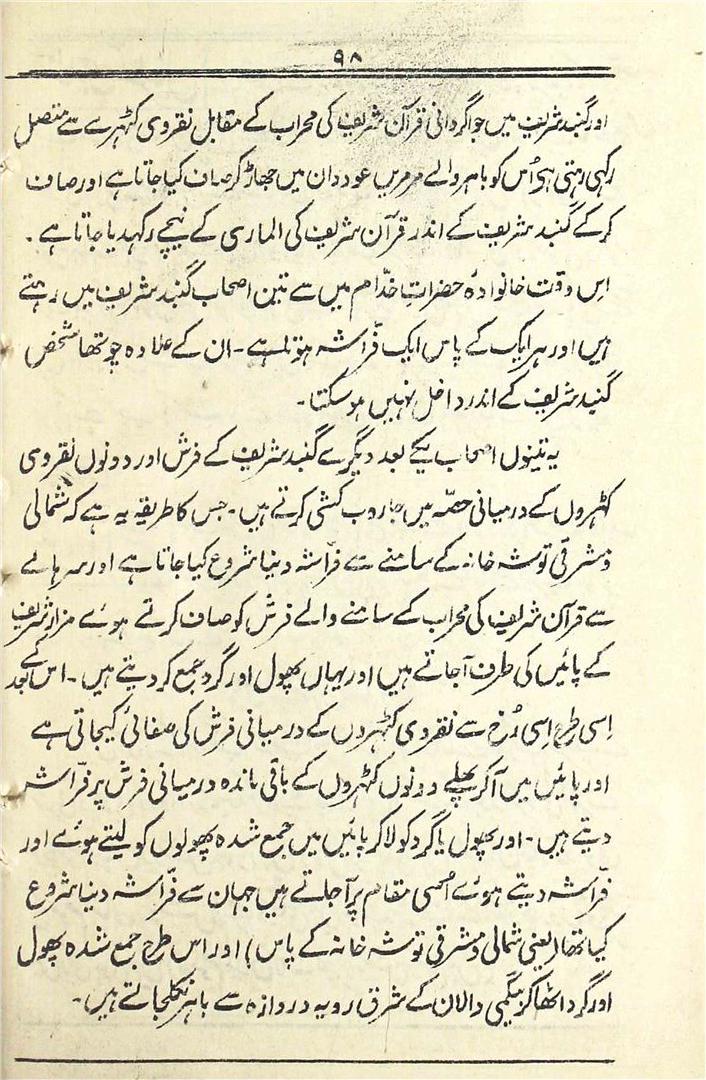 ۹۸
اور گنبد شریف میں جو اگردانی قرآن شریف کی محراب کے مقابل نقروی کٹہرے سے متصل
رکہی رہتی ہی اُس کو باہر والے مرمریں عود دان میں جھاڑ کر صاف کیا جاتا ہے اور صاف
کر کے گنبد شریف کے اندر قرآن شریف کی الماری کے نیچے رکہدیا جاتا ہے ۔
اِس وقت خانوادۂ حضرات خدّام میں سے تین اصحاب گنبد شریف میں رہتے
ہیں اور ہر ایک کے پاس ایک فرّاشہ ہوتا ہے ۔ ان کے علاوہ چوتھا شخص
گنبد شریف کے اندر داخل نہیں ہو سکتا ۔
یہ تینوں اصحاب یکے بعد دیگرے گنبد شریف کے فرش اور دونوں نقروی
کٹہروں کے درمیانی حصّہ میں جاروب کشی کرتے ہیں ۔ جس کا طریقہ یہ ہے کہ شمالی
و مشرقی توشہ خانہ کے سامنے سے فرّاشہ دینا شروع کیا جاتا ہے اور سرہانے
سے قرآن شریف کی محراب کے سامنے والے فرش کو صاف کرتے ہوئے مزار شریف
کے پائیں کی طرف آجاتے ہیں اور یہاں پھول اور گرد جمع کر دیتے ہیں ۔ اس کے بعد
اِسی طرح اِسی رُخ سے نقروی کٹہروں کے درمیانی فرش کی صفائی کیجاتی ہے
اور پائیں میں آکر پہلے دونوں کٹہروں کے باقی ماندہ درمیانی فرش پر فرّاشہ
دیتے ہیں ۔ اور پھول یا گرد کو لاکر پائیں میں جمع شدہ پھولوں کو لیتے ہوئے اور
فرّاشہ دیتے ہوئے اُسی مقام پر آجاتے ہیں جہان سے فرّاشہ دینا شروع
کیا تھا (یعنی شمالی و مشرقی توشہ خانہ کے پاس) اور اس طرح جمع شدہ پھول
اور گرد اٹھا کر بیگمی دالان کے شرق رویہ دروازہ سے باہر نکلجاتے ہیں ۔